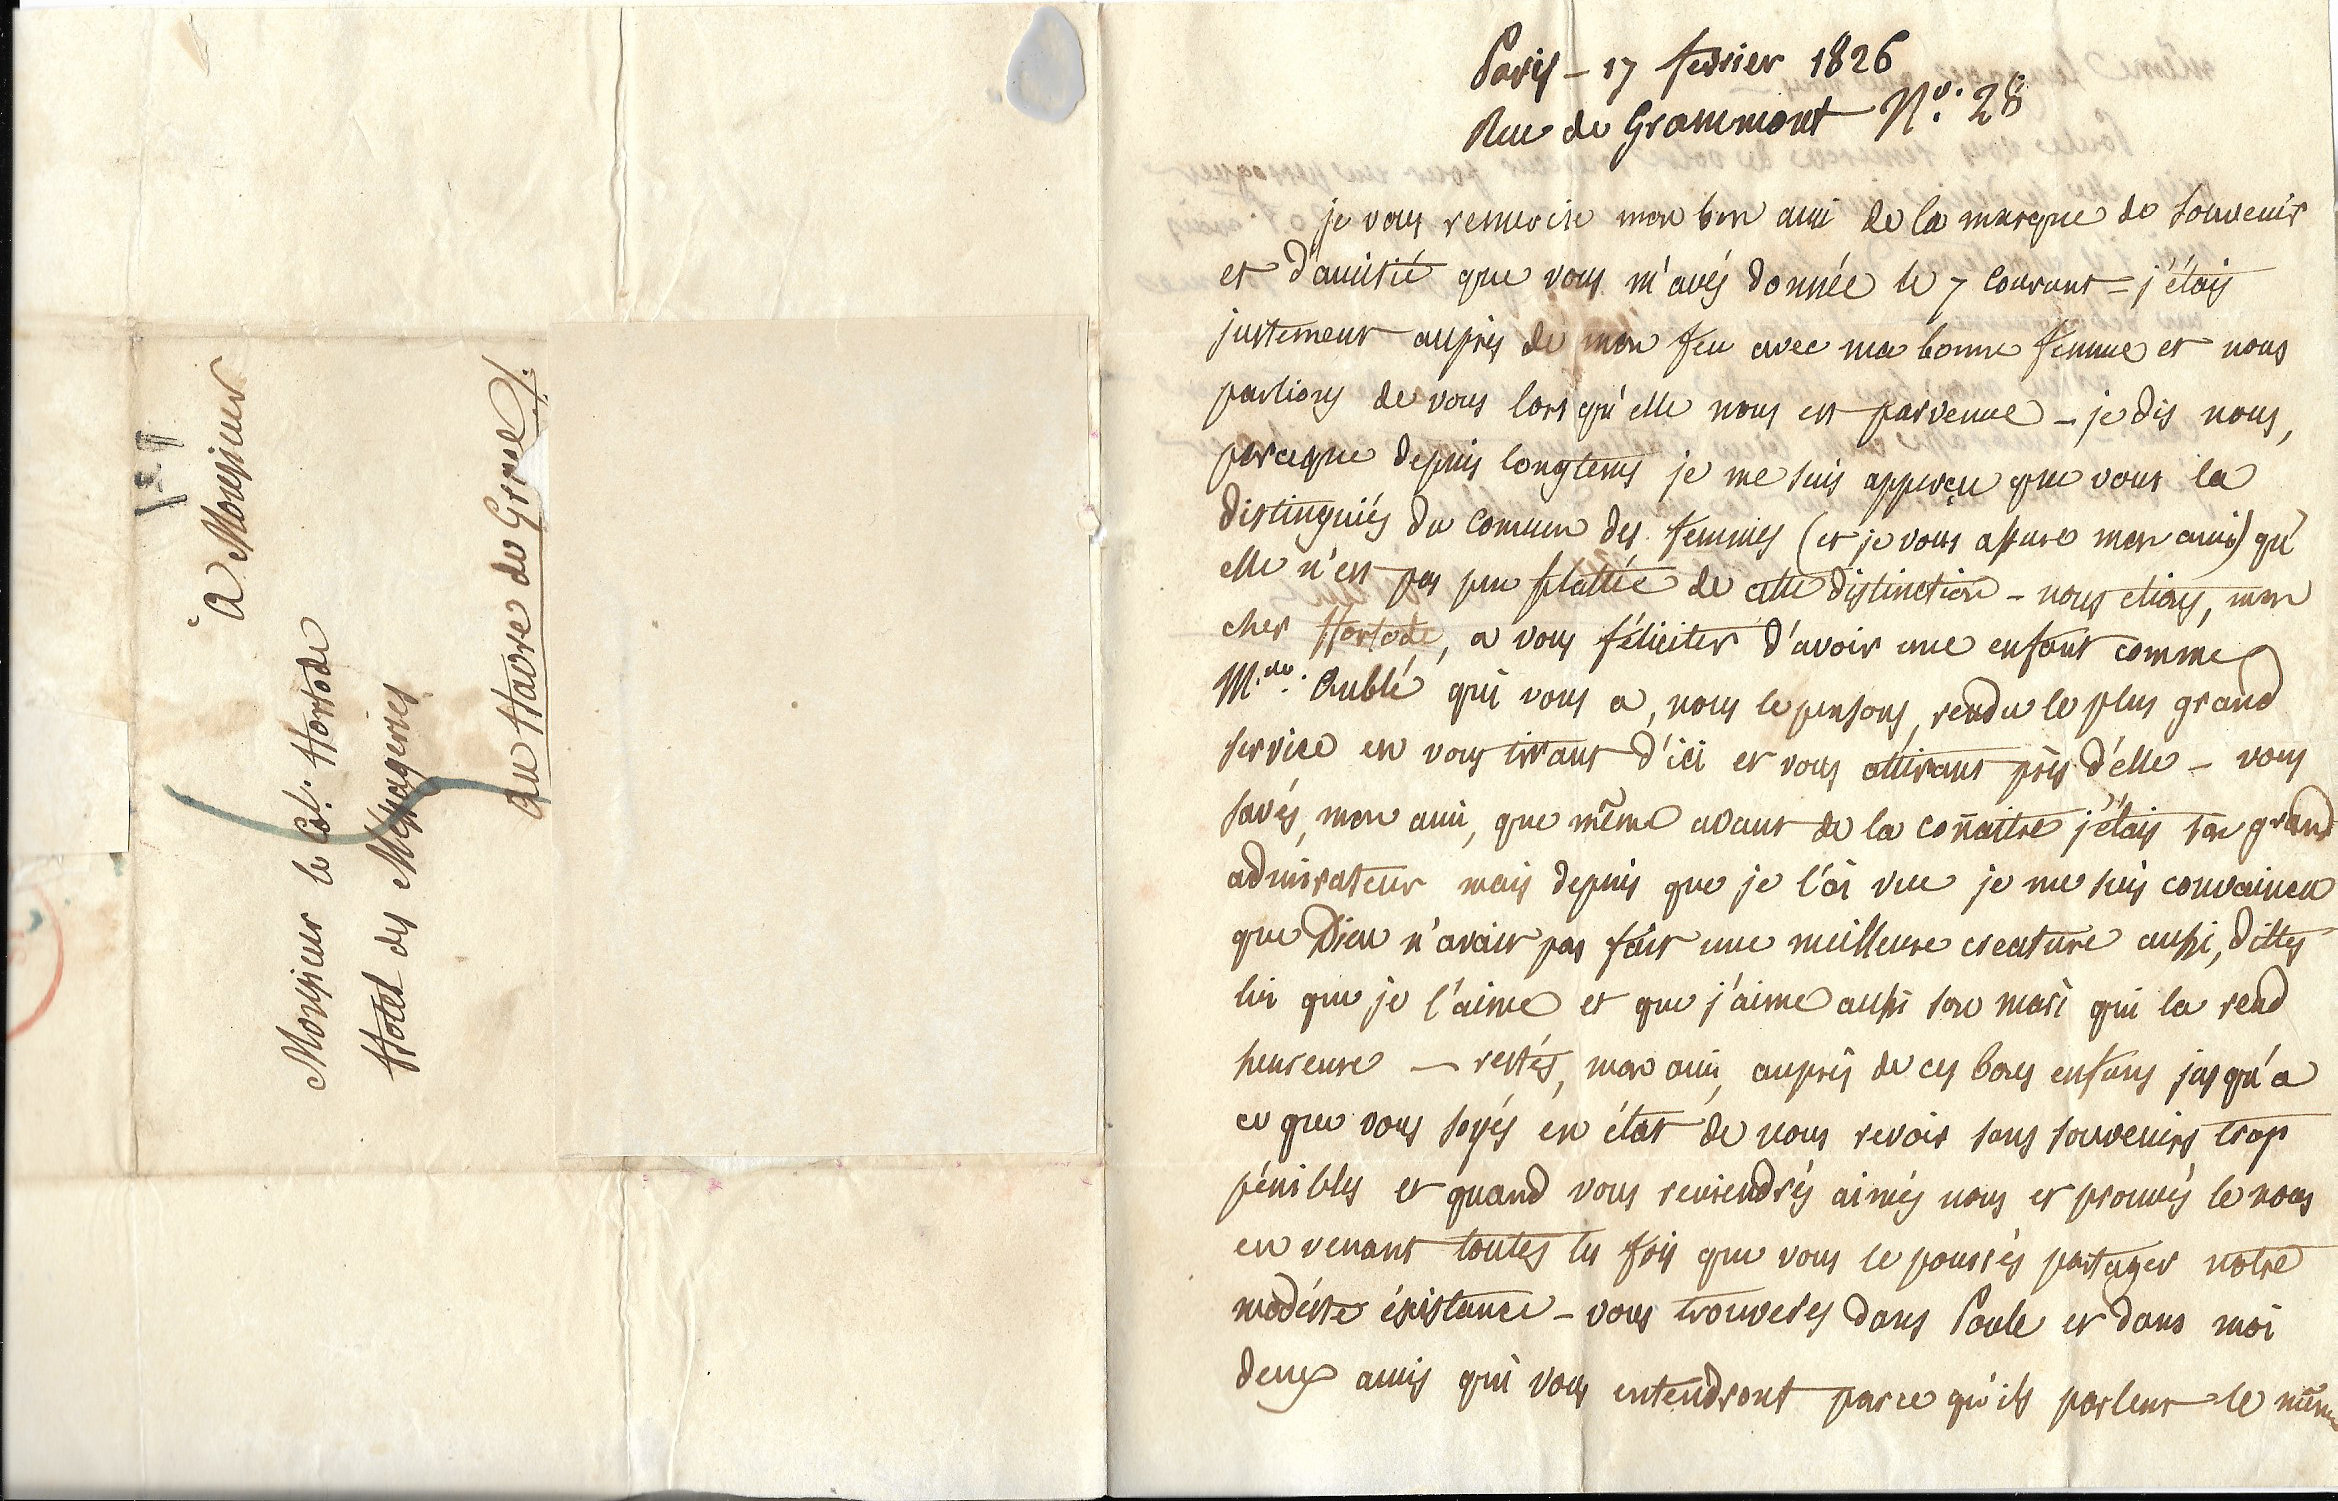 A Monsieur
Monsieur le Col. Hortode
Hotel des Messageries
au Havre de Grace
Paris – 17 fevrier 1826
Rue de Grammont N.º 28
je vous remercie mon bon ami de la marque de souvenir
et d'amitié que vous m'avés donnée le 7 courant = j'étais
justement auprès de mon feu avec ma bonne femme et nous
parlions de vous lors qu'elle nous est parvenue – je dis nous,
parceque depuis longtems je me suis apperçu que vous la
distinguiés du comun des femmes (et je vous assure mon ami) qu'
elle n'est pas peu flattée de cette distinction – nous etions, mon
cher Hortode, a vous féliciter d'avoir une enfant comme
M.de Aublé qui vous a, nous le pensons, rendu le plus grand
service en vous tirant d'ici et vous attirant près d'elle – vous
savés, mon ami, que même avant de la coñaitre j'étais son grand
admirateur mais depuis que je l'ai vue je me suis convaincu
que Dieu n'avait pas fait une meilleure creature aussi, dittes
lui que je l'aime et que j'aime aussi son mari qui la rend
heureuse – restés, mon ami, auprès de ces bons enfans jusqu'a
ce que vous soyés en état de nous revoir sans souvenirs trop
pénibles et quand vous reviendrés aimés nous et prouvés le nous
en venant toutes les fois que vous le pourrés partager notre
modéste éxistance – vous trouverés dans Paule et dans moi
deux amis qui vous entendront parce qu'ils parlent le même